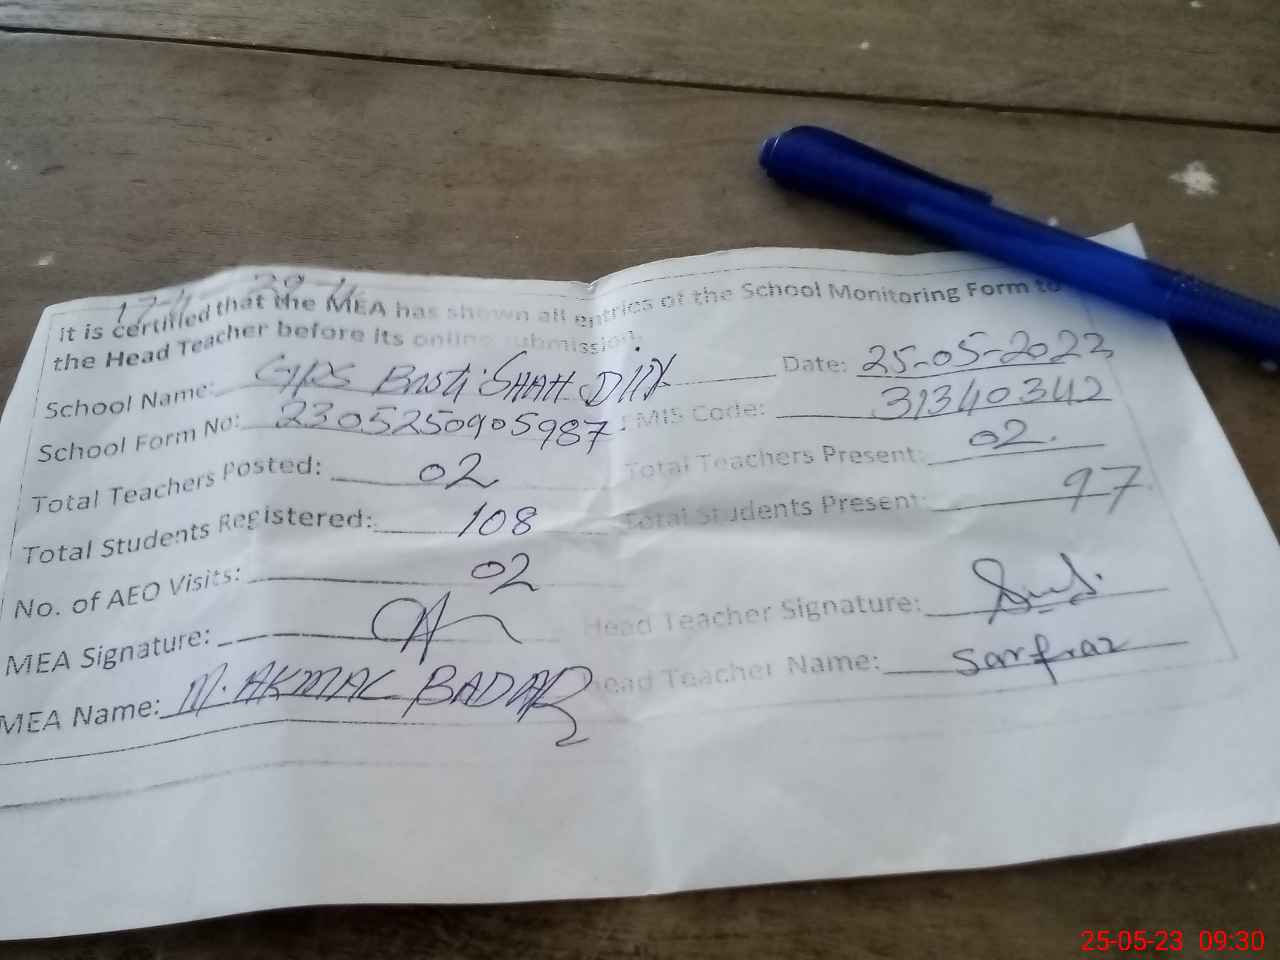 17-4 29-4
it is certified that the MEA has shown all entries of the School Monitoring Form to
the Head Teacher before its online submission.
School Name: GPS Basti SHAH DIN Date: 25-05-2023
School Form No: 2305250905987 EMIS Code: 31340342
Total Teachers Posted: 02 Total Teachers Present: 02.
Total Students Registered: 108 Total Students Present: 97
No. of AEO Visits: 02
MEA Signature: Head Teacher Signature:
MEA Name: M. AKMAL BADAR Head Teacher Name: Sarfraz
25-05-23 09:30